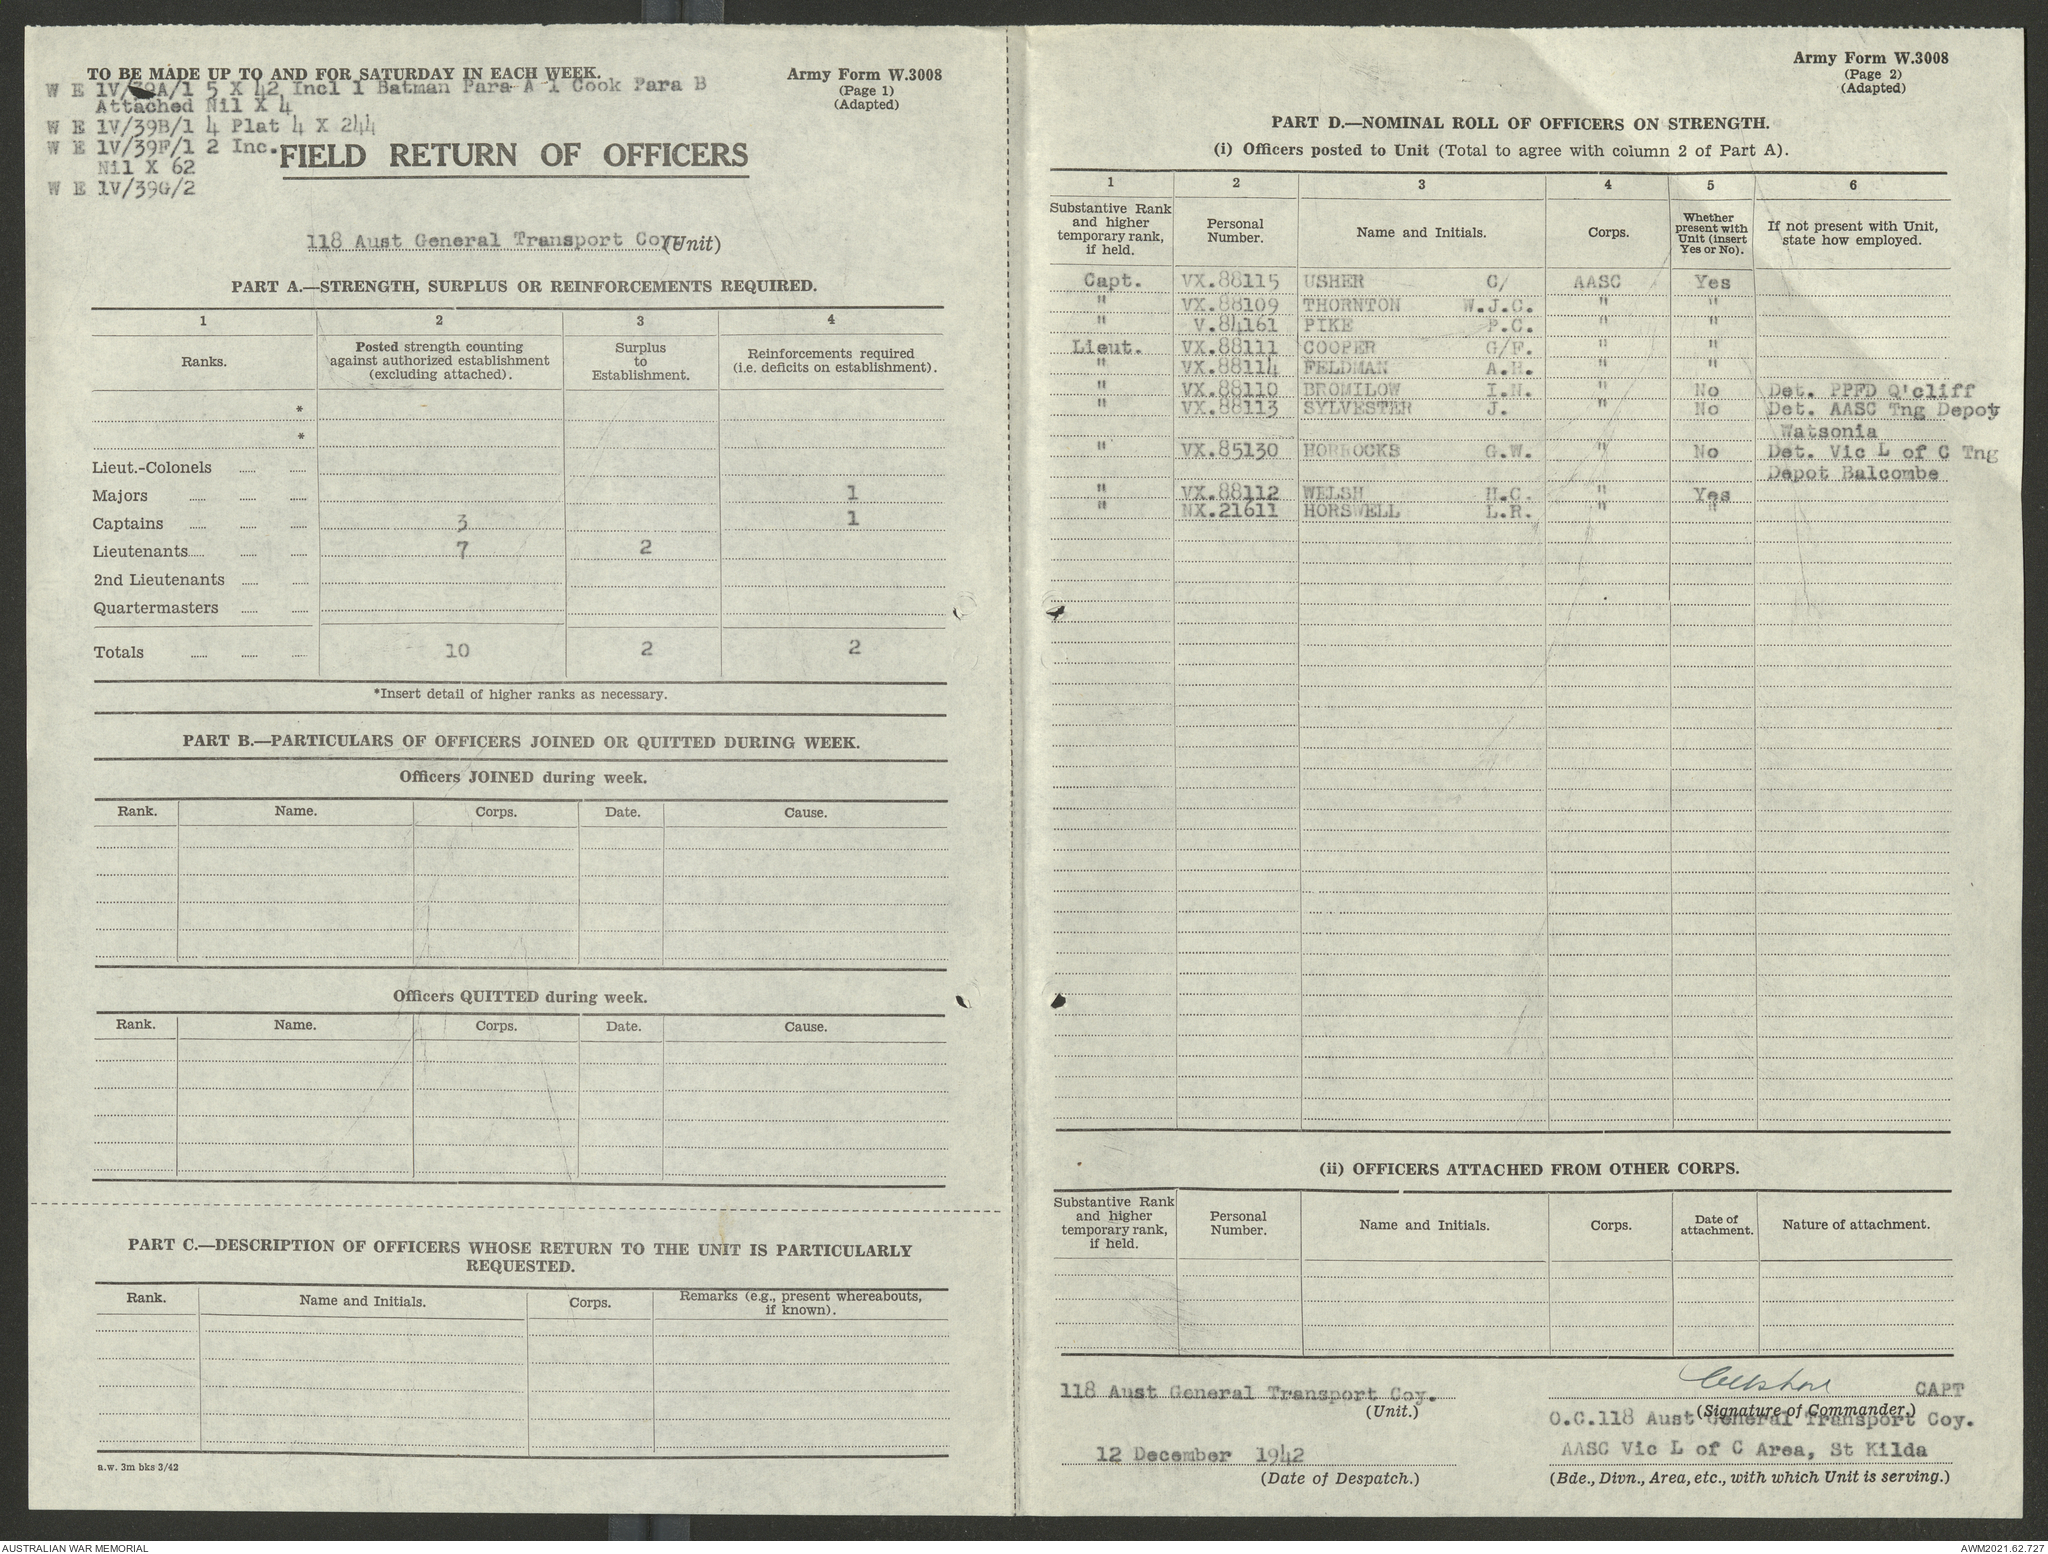 TO BE MADE UP TO AND FOR SATURDAY IN EACH WEEK.
Army Form W.3008
(Page 1)
(Adapted)
W E 1V/39A/1 5 X 42 Incl 1 Batman Para A 1 Cook Para B
Attached Nil X 4
W E 1V/39B/1 4 Plat 4 X 244
W E 1V/39F/1 2 Inc.
Nil X 62
W E 1V/39G/2
FIELD RETURN OF OFFICERS
118 Aust General Transport Coy. (Unit)
PART A.—STRENGTH, SURPLUS OR REINFORCEMENTS REQUIRED.
1 2 3 4
Ranks. Posted strength counting against authorized establishment (excluding attached). Surplus to Establishment. Reinforcements required (i.e. deficits on establishment).
*
*
Lieut.-Colonels ...... ......
Majors ...... ...... ...... 1
Captains ...... ...... ...... 3 1
Lieutenants...... ...... ...... 7 2
2nd Lieutenants ...... ......
Quartermasters ...... ......
Totals ...... ...... ...... 10 2 2
*Insert detail of higher ranks as necessary.
PART B.—PARTICULARS OF OFFICERS JOINED OR QUITTED DURING WEEK.
Officers JOINED during week.
Rank. Name. Corps. Date. Cause.
Officers QUITTED during week.
Rank. Name. Corps. Date. Cause.
PART C.—DESCRIPTION OF OFFICERS WHOSE RETURN TO THE UNIT IS PARTICULARLY
REQUESTED.
Rank. Name and Initials. Corps. Remarks (e.g., present whereabouts, if known).
a.w. 3m bks 3/42
Army Form W.3008
(Page 2)
(Adapted)
PART D.—NOMINAL ROLL OF OFFICERS ON STRENGTH.
(i) Officers posted to Unit (Total to agree with column 2 of Part A).
1 2 3 4 5 6
Substantive Rank and higher temporary rank, if held. Personal Number. Name and Initials. Corps. Whether present with Unit (insert Yes or No). If not present with Unit, state how employed.
Capt. VX.88115 USHER C/ AASC Yes
" VX.88109 THORNTON W.J.C. " "
" V.84161 PIKE P.C. " "
Lieut. VX.88111 COOPER G/F. " "
" VX.88114 FELDMAN A.H. " "
" VX.88110 BROMILOW I.N. " No Det. PPFD Q'cliff
" VX.88113 SYLVESTER J. " No Det. AASC Tng Depot
Watsonia
" VX.85130 HORROCKS G.W. " No Det. Vic L of C Tng
Depot Balcombe
" VX.88112 WELSH H.C. " Yes
" NX.21611 HORSWELL L.R. " "
(ii) OFFICERS ATTACHED FROM OTHER CORPS.
Substantive Rank and higher temporary rank, if held. Personal Number. Name and Initials. Corps. Date of attachment. Nature of attachment.
118 Aust General Transport Coy.
(Unit.)
12 December 1942
(Date of Despatch.)
CAPT
(Signature of Commander.)
O.C.118 Aust General Transport Coy.
AASC Vic L of C Area, St Kilda
(Bde., Divn., Area, etc., with which Unit is serving.)
AUSTRALIAN WAR MEMORIAL
AWM2021.62.727